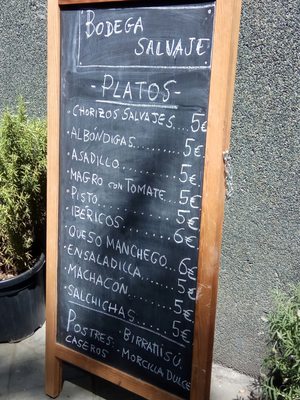 BODEGA
SALVAJE
-PLATOS-
CHORIZOS SALVAJES....5€
ALBÓNDIGAS.........5€
ASADILLO...........5€
MAGRO CON TOMATE...5€
PISTO..............5€
IBÉRICOS...........6€
QUESO MANCHEGO.....6€
ENSALADILLA........5€
MACHACÓN...........5€
SALCHICHAS.........5€
POSTRES: · BIRRAMISÚ
CASEROS · MORCILLA DULCE